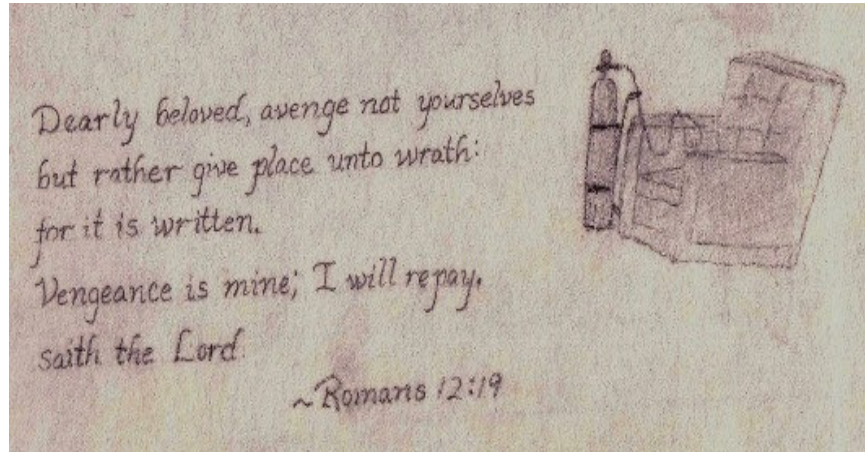 Dearly beloved, avenge not yourselves
but rather give place unto wrath:
for it is written.
Vengeance is mine; I will repay.
saith the Lord
~Romans 12:19